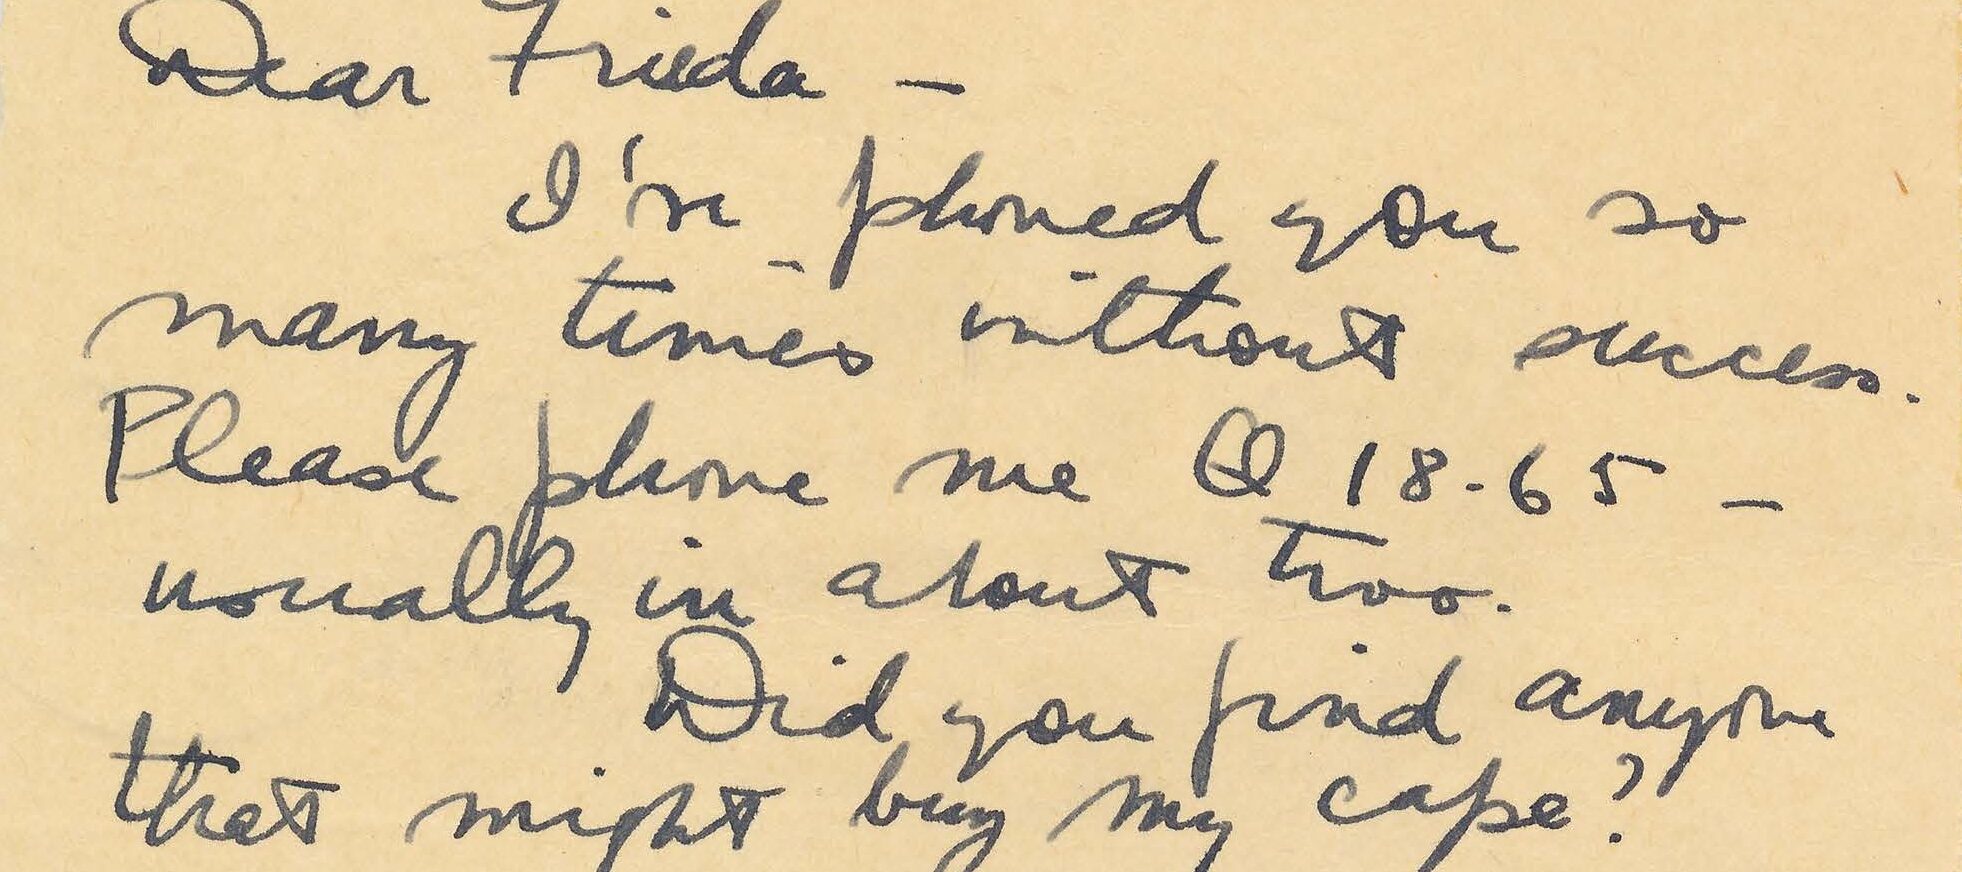 Dear Frieda –
I've phoned you so
many times without success.
Please phone me Q 18-65 –
usually in about two.
Did you find anyone
that might buy my cape?